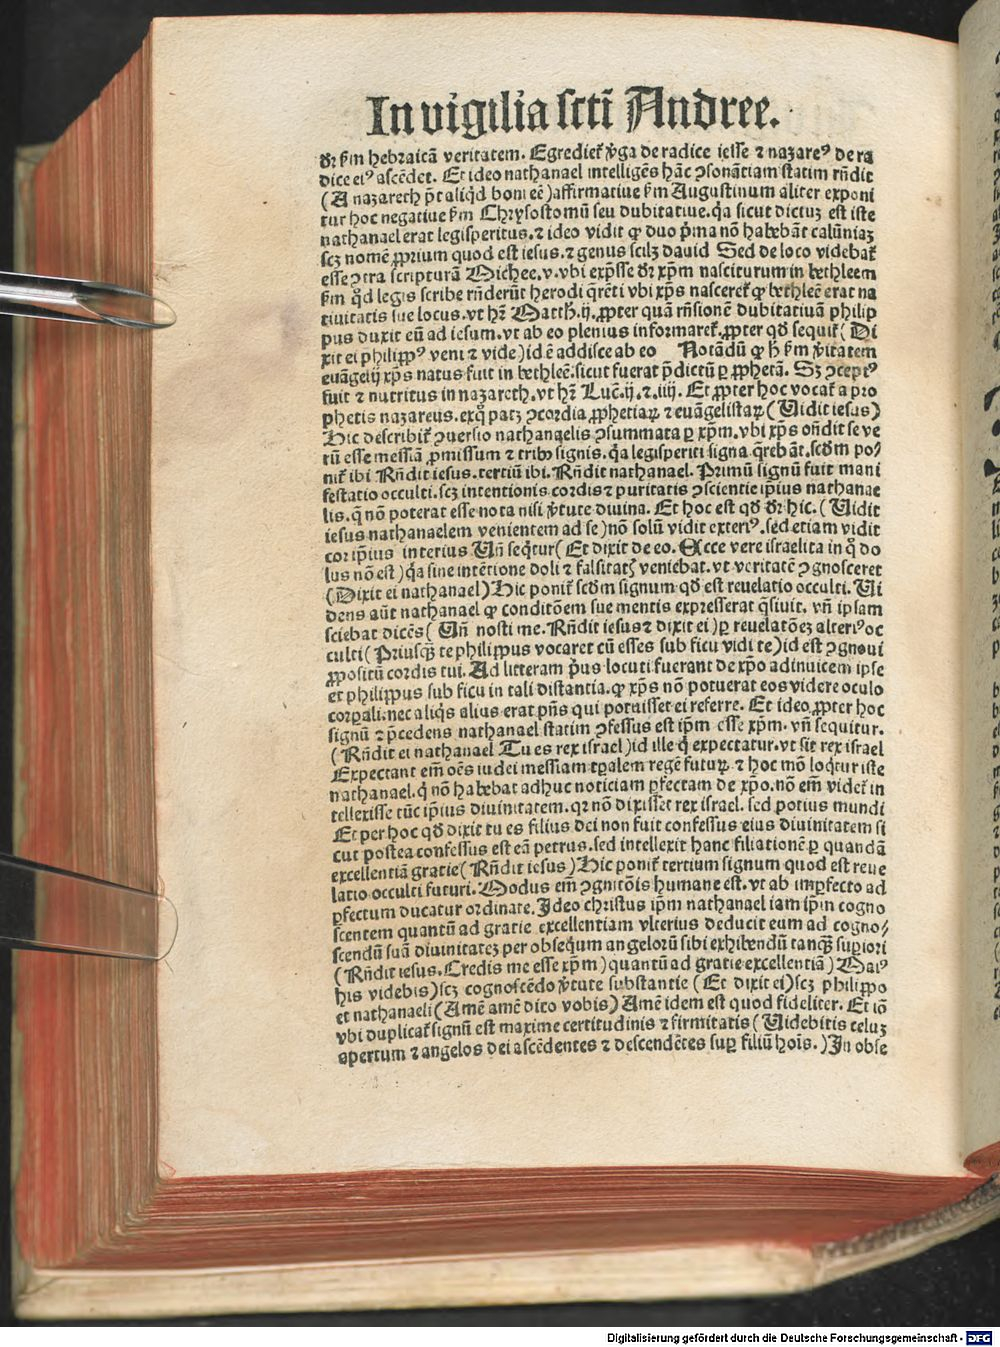 In vigilia scti Andree.
dr̄ ẜm hebraicā veritatem. Egrediet̉ v̓ga de radice iesse ⁊ nazareꝰ de ra
dice eiꝰ ascēdet. Et ideo nathanael intelligēs hāc ↄsonātiam statim rn̄dit
(A nazareth p̄t aliq̉d boni eē) affirmatiue ẜm Augustinum aliter exponi
tur hoc negatiue ẜm Chrysostomū seu dubitatiue. q̉a sicut dictuꝫ est iste
nathanael erat legisperitus. ⁊ ideo vidit ꝙ duo p̓ma nō habebāt calūniaꝫ
scꝫ nomē ꝓprium quod est iesus. ⁊ genus scilꝫ dauid Sed de loco videbat̉
esse ↄtra scripturā Michee. v. vbi exp̄sse dr̄ xp̄m nasciturum in bethleem
ẜm q̉d legis scribe rn̄derūt herodi q̄rēti vbi xp̄s nasceret̉ ꝙ bethleē erat na
tiuitatis sue locus. vt hꝫ̄ Matth. ij. ꝓpter quā rn̄sionē dubitatiuā philip
pus duxit eū ad iesum. vt ab eo plenius informaret̉. ꝓpter qd̄ sequit̉ (Di
xit ei philippꝰ veni ⁊ vide) id ē addisce ab eo Notādū ꝙ h̄ ẜm v̓itatem
euāgelij xp̄s natus fuit in bethleē. sicut fuerat p̄dictū ꝑ ꝓphetā. Sꝫ ↄceptꝰ
fuit ⁊ nutritus in nazareth. vt hꝫ̄ Luc̄. ij. ⁊. iiij. Et ꝓpter hoc vocat̉ a pro
phetis nazareus. ex q̊ patꝫ ↄcordia ꝓphetiaꝝ ⁊ euāgelistaꝝ (Vidit iesus)
Hic describit̉ ↄuersio nathanaelis ↄsummata ꝑ xp̄m. vbi xp̄s on̄dit se ve
rū esse messiā ꝓmissum ⁊ tribꝰ signis. q̉a legisperiti signa q̄rebāt. scd̄m po⸗
nit̉ ibi Rn̄dit iesus. tertiū ibi. Rn̄dit nathanael. Primū signū fuit mani
festatio occulti. scꝫ intentionis cordis ⁊ puritatis ↄscientie ip̄ius nathanae
lis. q̄ nō poterat esse nota nisi v̓tute diuina. Et hoc est qd̄ dr̄ hic. (Vidit
iesus nathanaelem venientem ad se) nō solū vidit exteriꝰ. sed etiam vidit
cor ip̄ius interius Vn̄ seq̉tur (Et dixit de eo. Ecce vere israelita in q̊ do
lus nō est) q̉a sine intētione doli ⁊ falsitatꝭ veniebat. vt veritatē ↄgnosceret
(Dixit ei nathanael) Hic ponit̉ scd̄m signum qd̄ est reuelatio occulti. Vi
dens aūt nathanael ꝙ conditōem sue mentis expresserat q̄siuit. vn̄ ipsam
sciebat dicēs (Vn̄ nosti me. Rn̄dit iesus ⁊ dixit ei) ꝑ reuelatōeꝫ alteriꝰ oc
culti (Priusq̄ȝ te philippus vocaret cū esses sub ficu vidi te) id est ↄgnoui
ꝓpositū cordis tui. Ad litteram p̓us locuti fuerant de xp̄o adinuicem ipse
et philippus sub ficu in tali distantia. ꝙ xp̄s nō potuerat eos videre oculo
corꝑali. nec aliq̉s alius erat p̄ns qui potuisset ei referre. Et ideo ꝓpter hoc
signū ⁊ p̄cedens nathanael statim ↄfessus est ip̄m esse xp̄m. vn̄ sequitur.
(Rn̄dit ei nathanael Tu es rex israel) id ille q̉ expectatur. vt sit rex israel
Expectant em̄ oēs iudei messiam tꝑalem regē futuꝝ. ⁊ hoc mō loq̉tur iste
nathanael. q̉ nō habebat adhuc noticiam ꝑfectam de xp̄o. nō em̄ videt̉ in
tellexisse tūc ip̄ius diuinitatem. qꝛ nō dixisset rex israel. sed potius mundi
Et per hoc qd̄ dixit tu es filius dei non fuit confessus eius diuinitatem si
cut postea confessus est eā petrus. sed intellexit hanc filiationē ꝑ quandā
excellentiā gratie (Rn̄dit iesus) Hic ponit̉ tertium signum quod est reue
latio occulti futuri. Modus em̄ ↄgnitōis humane est. vt ab imꝑfecto ad
ꝑfectum ducatur ordinate. Ideo christus ip̄m nathanael iam ip̄m cogno
scentem quantū ad gratie excellentiam vlterius deducit eum ad cogno⸗
scendū suā diuinitateꝫ per obseq̉um angelorū sibi exhibendū tanq̄ȝ suꝑiori
(Rn̄dit iesus. Credis me esse xp̄m) quantū ad gratie excellentiā) Maiꝰ
his videbis) scꝫ cognoscēdo v̓tute substantie (Et dixit ei) scꝫ philippo
et nathanaeli (Amē amē dico vobis) Amē idem est quod fideliter. Et iō
vbi duplicat̉ signū est maxime certitudinis ⁊ firmitatis (Videbitis celuꝫ
apertum ⁊ angelos dei ascēdentes ⁊ descendētes suꝑ filiū hoīs.) In obse
Digitalisierung gefördert durch die Deutsche Forschungsgemeinschaft - DFG